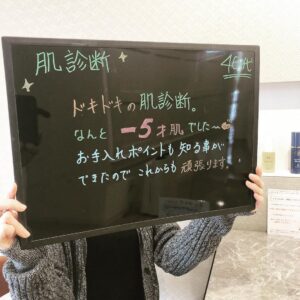 肌診断
40代
ドキドキの肌診断。
なんと -5才肌でした〜
お手入れポイントも知る事が
できたので これからも 頑張ります。